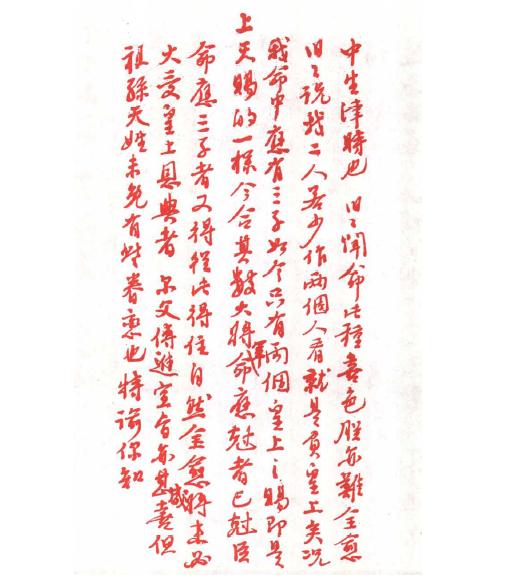 中生津時也 旧〻聞命此種喜色朕亦難全愈
旧〻說我二人若少作兩個人看就是負皇上矣況
我命中應有三子如今只有兩個皇上之賜即是
上天賜的一樣今合其數大將軍命應尅者已尅臣
命應三子者又得從此得住自然全愈將來必
大受皇上恩典者 尔父傳進宣旨亦甚感喜但
祖孫天姓未免有些眷恋也特諭你知